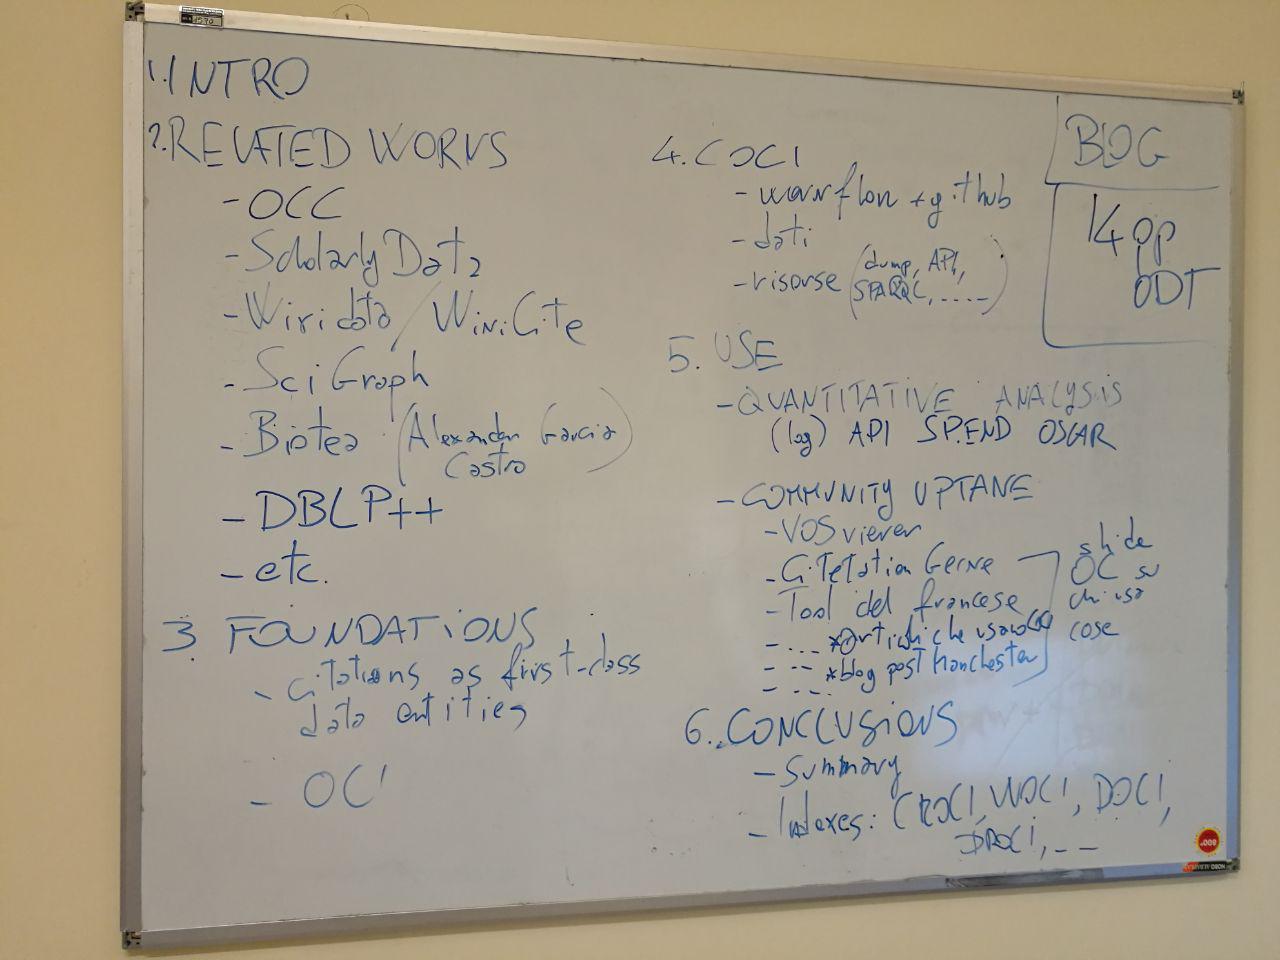 1. INTRO
2. RELATED WORKS
- OCC
- ScholarlyData
- Wikidata / WikiCite
- SciGraph
- Biotea (Alexander Garcia
Castro)
- DBLP++
- etc.
3. FOUNDATIONS
- Citations as first-class
data entities
- OCI
4. COCI
- workflow + github
- dati
- risorse (dump, API,
SPARQL, .....)
5. USE
- QUANTITATIVE ANALYSIS
(log) API SP.END OSCAR
- COMMUNITY UPTAKE
- VOSviewer
- Citation Gecko
- Tool del francese
- ... *Articoli che usano
- ... *blog post Manchester
- ...
slide
OC su
chi usa
cose
6. CONCLUSIONS
- Summary
- Indexes: CROCI, WOCI, DOCI,
DROCI, ...
BLOG
14 pp
ODT